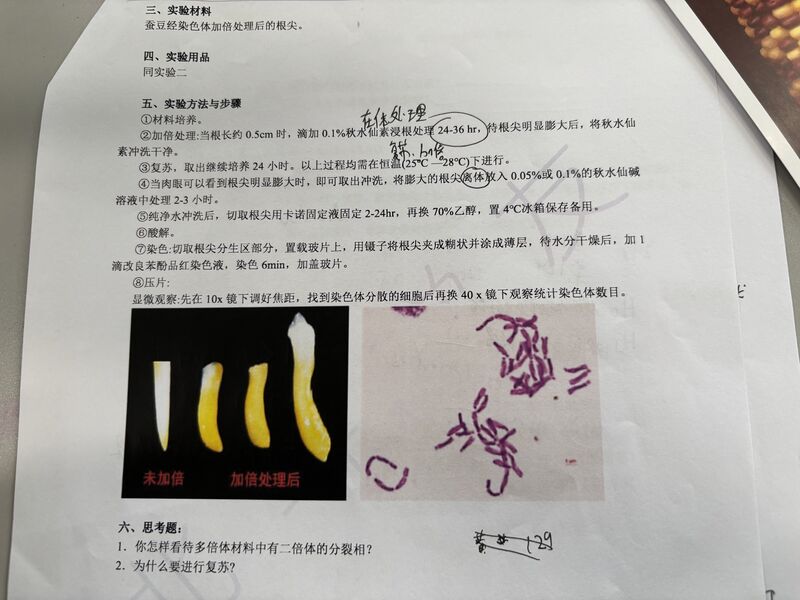 三、实验材料
蚕豆经染色体加倍处理后的根尖。
四、实验用品
同实验二
五、实验方法与步骤
①材料培养。
在体处理
②加倍处理:当根长约 0.5cm 时，滴加 0.1%秋水仙素浸根处理 24-36 hr，待根尖明显膨大后，将秋水仙
素冲洗干净。
③复苏，取出继续培养 24 小时。以上过程均需在恒温(25℃ —28℃)下进行。
④当肉眼可以看到根尖明显膨大时，即可取出冲洗，将膨大的根尖离体放入 0.05%或 0.1%的秋水仙碱
溶液中处理 2-3 小时。
⑤纯净水冲洗后，切取根尖用卡诺固定液固定 2-24hr，再换 70%乙醇，置 4℃冰箱保存备用。
⑥酸解。
⑦染色:切取根尖分生区部分，置载玻片上，用镊子将根尖夹成糊状并涂成薄层，待水分干燥后，加 1
滴改良苯酚品红染色液，染色 6min，加盖玻片。
⑧压片:
显微观察:先在 10x 镜下调好焦距，找到染色体分散的细胞后再换 40 x 镜下观察统计染色体数目。
未加倍 加倍处理后
六、思考题:
1．你怎样看待多倍体材料中有二倍体的分裂相?
2．为什么要进行复苏?
129